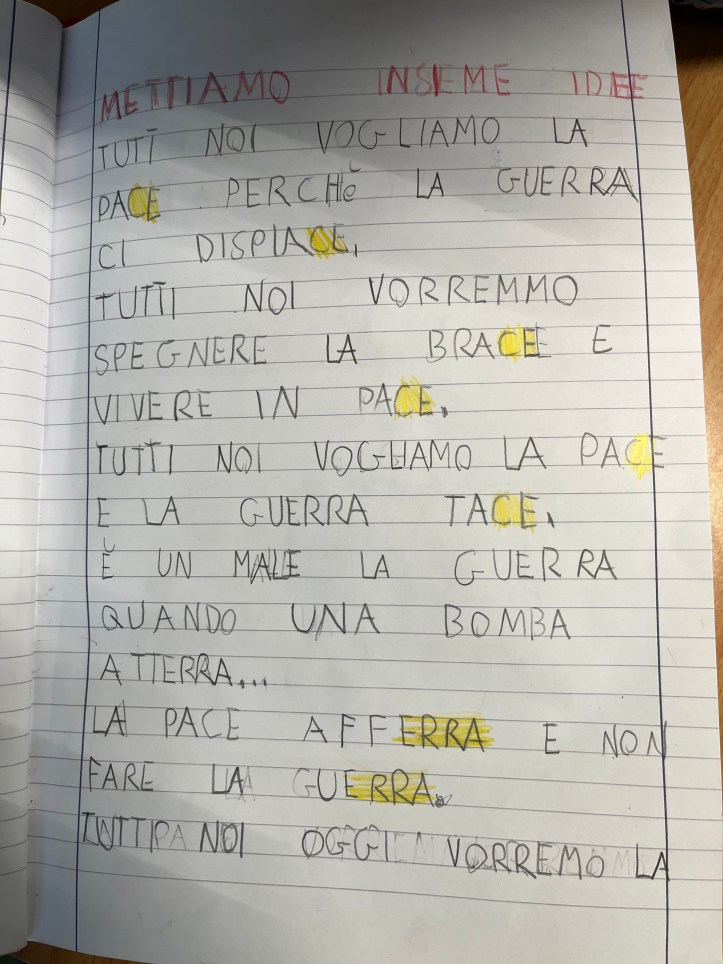 METTIAMO INSIEME IDEE
TUTI NOI VOGLIAMO LA
PACE PERCHè LA GUERRA
CI DISPIACE.
TUTTI NOI VORREMMO
SPEGNERE LA BRACE E
VIVERE IN PACE.
TUTTI NOI VOGLIAMO LA PACE
E LA GUERRA TACE.
È UN MALE LA GUERRA
QUANDO UNA BOMBA
ATTERRA...
LA PACE AFFERRA E NON
FARE LA GUERRA.
TUTTI NOI OGGI VORREMO LA